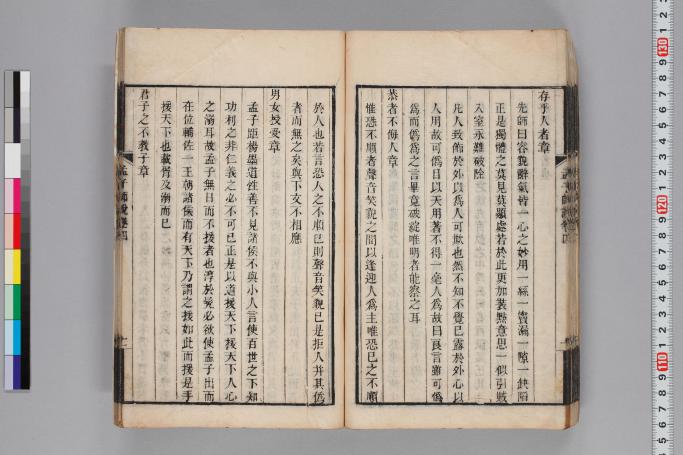 存乎人者章
先師曰容貌辭氣皆一心之妙用一絲一竇漏一隙一缺陷
正是獨體之莫見莫顯處若於此更加裝點意思一似引賊
入室永難破除
凡人致飾於外以爲人可欺也然不知不覺已露於外心以
人用故可僞目以天用著不得一毫人爲故曰良言雖可僞
爲而僞爲之言畢竟破綻唯明者能察之耳
恭者不侮人章
惟恐不順者聲音笑貌之間以逢迎人爲主唯恐已之不順
於人也若言恐人之不順已則聲音笑貌已是拒人并其僞
者而無之矣與下文不相應
男女授受章
孟子距楊墨道性善不見諸侯不與小人言使百世之下知
功利之非仁義之必不可已正是以道援天下援天下人心
之溺耳故孟子無日而不援者也淳于髡必欲使孟子出而
在位輔佐一王朝諸侯而有天下乃謂之援如此而援是手
援天下也載胥及溺而已
君子之不教子章
孟子師說卷四